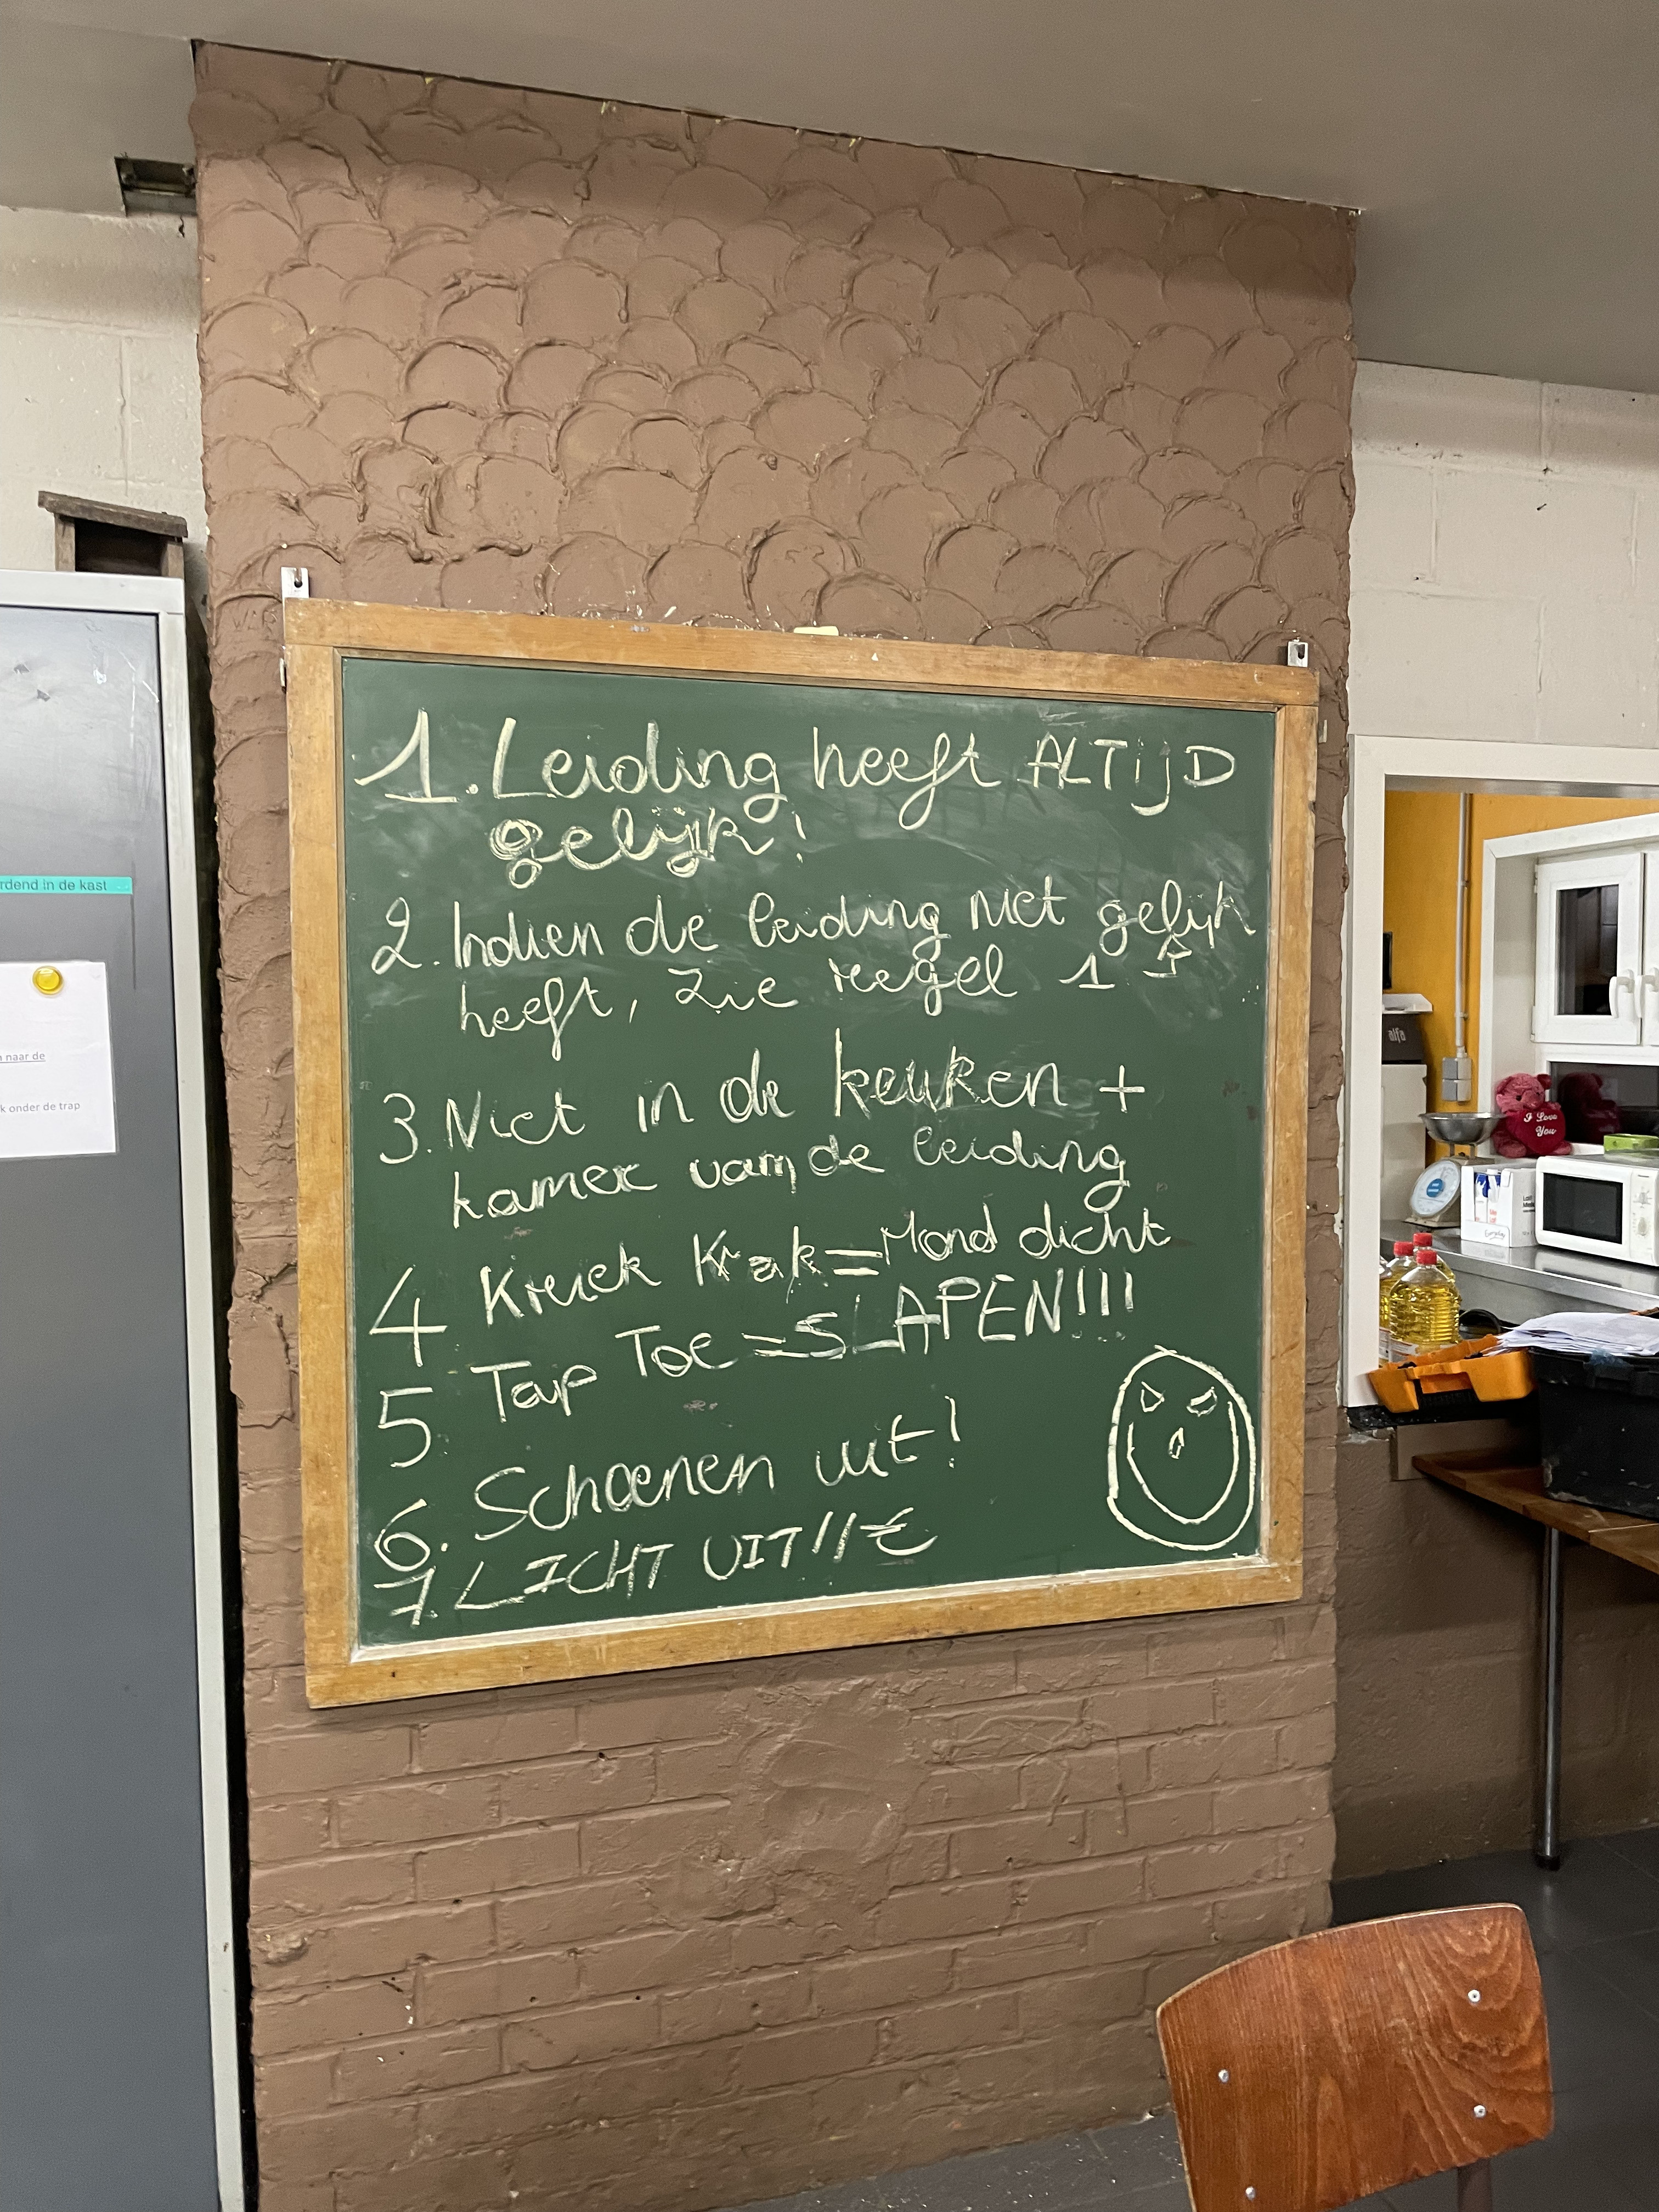 1. Leiding heeft ALTijD
gelijk!
2. Indien de leiding niet gelijk
heeft, zie regel 1
3. Niet in de keuken +
kamer van de leiding
4 Kriek Krak = Mond dicht
5 Tap Toe = SLAPEN!!!
6. Schoenen uit!
7. LICHT UIT!!
rdend in de kast
naar de
k onder de trap
alfa
I Love
You